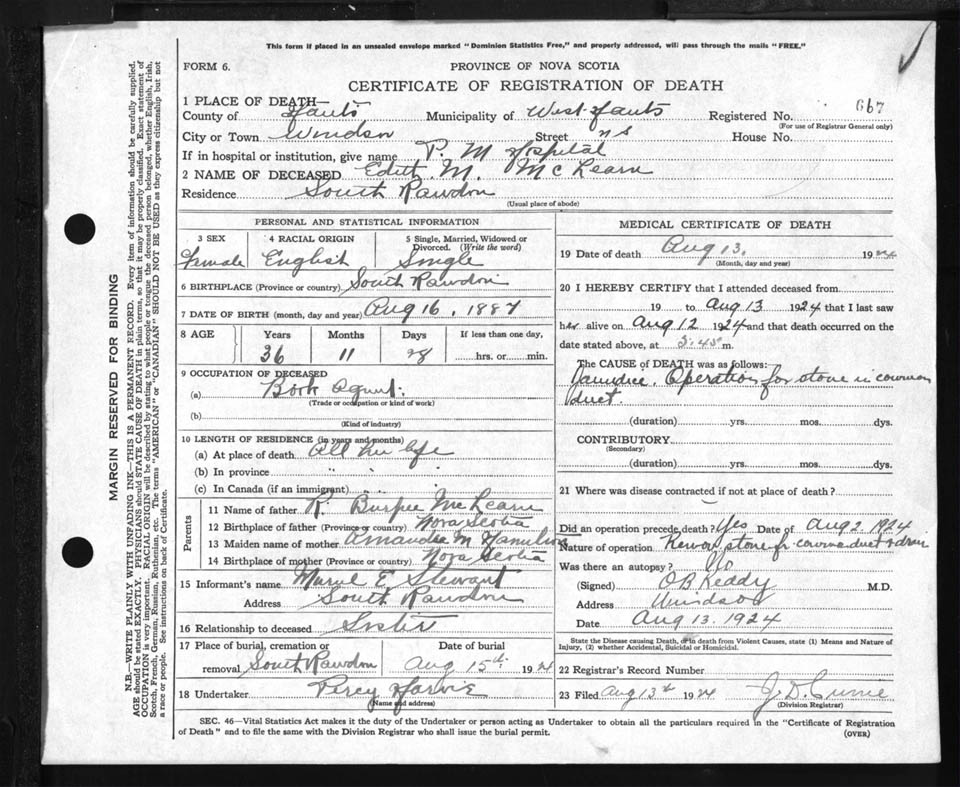 This form if placed in an unsealed envelope marked "Dominion Statistics Free," and properly addressed, will pass through the mails "FREE."
FORM 6. PROVINCE OF NOVA SCOTIA
CERTIFICATE OF REGISTRATION OF DEATH
1 PLACE OF DEATH—
County of Hants Municipality of West Hants Registered No. 667
(For use of Registrar General only)
City or Town Windsor Street N S House No.
If in hospital or institution, give name P. M Hospital
2 NAME OF DECEASED Edith M. McLearn
Residence South Rawdon
(Usual place of abode)
PERSONAL AND STATISTICAL INFORMATION
3 SEX 4 RACIAL ORIGIN 5 Single, Married, Widowed or Divorced. (Write the word)
Female English Single
6 BIRTHPLACE (Province or country) South Rawdon
7 DATE OF BIRTH (month, day and year) Aug 16, 1887
8 AGE Years Months Days If less than one day,
36 11 28 hrs. or min.
9 OCCUPATION OF DECEASED
(a) Book Agent.
(Trade or occupation or kind of work)
(b)
(Kind of industry)
10 LENGTH OF RESIDENCE (in years and months)
(a) At place of death All her life
(b) In province " " "
(c) In Canada (if an immigrant)
Parents
11 Name of father R. Burpee McLearn
12 Birthplace of father (Province or country) Nova Scotia
13 Maiden name of mother Amanda M Hamilton
14 Birthplace of mother (Province or country) Nova Scotia
15 Informant's name E. Stewart
Address South Rawdon
16 Relationship to deceased Sister
17 Place of burial, cremation or Date of burial
removal South Rawdon Aug 15th 1924
18 Undertaker Percy Harvie
(Name and address)
MEDICAL CERTIFICATE OF DEATH
19 Date of death Aug 13. 1924
(Month, day and year)
20 I HEREBY CERTIFY that I attended deceased from
19 to Aug 13 1924 that I last saw
her alive on Aug 12 1924 and that death occurred on the
date stated above, at 5:45 m.
The CAUSE OF DEATH was as follows:
Jaundice. Operation for stone in common
duct.
(duration) yrs. mos. dys.
CONTRIBUTORY
(Secondary)
(duration) yrs. mos. dys.
21 Where was disease contracted if not at place of death?
Did an operation precede death? Yes Date of Aug 2. 1924
Nature of operation Remov stone fr common duct & drain
Was there an autopsy? No
(Signed) O B Keddy M.D.
Address Windsor
Date Aug 13. 1924
State the Disease causing Death, or in death from Violent Causes, state (1) Means and Nature of Injury, (2) whether Accidental, Suicidal or Homicidal.
22 Registrar's Record Number
23 Filed Aug 13th 1924 J. D.
(Division Registrar)
SEC. 46—Vital Statistics Act makes it the duty of the Undertaker or person acting as Undertaker to obtain all the particulars required in the "Certificate of Registration
of Death" and to file the same with the Division Registrar who shall issue the burial permit. (OVER)
MARGIN RESERVED FOR BINDING
N.B.—WRITE PLAINLY WITH UNFADING INK—THIS IS A PERMANENT RECORD. Every item of information should be carefully supplied.
AGE should be stated EXACTLY. PHYSICIANS should STATE CAUSE OF DEATH in plain terms, so that it may be properly classified. Exact statement of
OCCUPATION is very important. RACIAL ORIGIN will be described by stating to what people or tongue the deceased person belonged, whether English, Irish,
Scotch, French, German, Russian, Ruthenian, etc. The terms "AMERICAN" or "CANADIAN" SHOULD NOT BE USED as they express citizenship but not
a race or people. See instructions on back of Certificate.